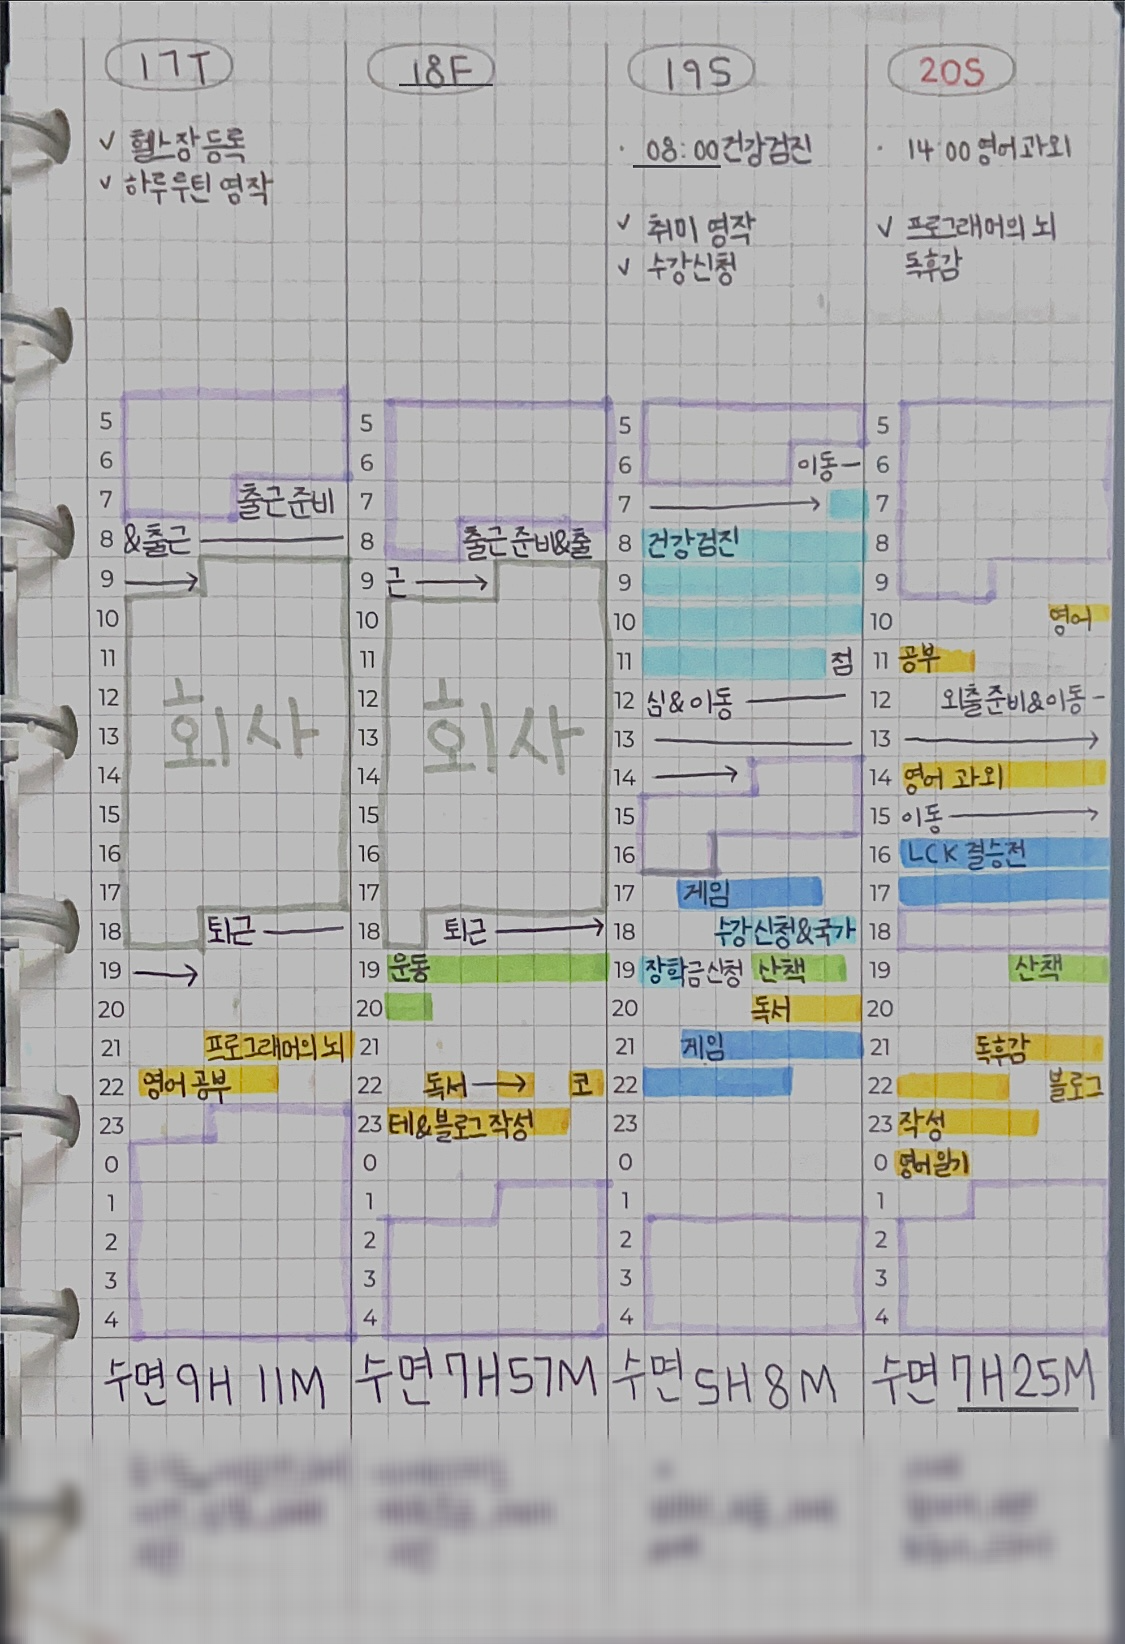 17T
✓ 헬스장 등록
✓ 하루루틴 영작
5
6
7 출근 준비
8 &출근 →
9
10
11
12 회사
13
14
15
16
17
18 퇴근 →
19
20
21 프로그래머의 뇌
22 영어 공부
23
0
1
2
3
4
수면 9H 11M
18F
5
6
7
8 출근 준비&출
9 근 →
10
11
12 회사
13
14
15
16
17
18 퇴근 →
19 운동
20
21
22 독서 → 코
23 테&블로그 작성
0
1
2
3
4
수면 7H 57M
19S
· 08:00 건강검진
✓ 취미 영작
✓ 수강신청
5
6 이동 →
7
8 건강검진
9
10
11 점
12 심&이동 →
13
14
15
16
17 게임
18 수강신청&국가
19 장학금신청 산책
20 독서
21 게임
22
23
0
1
2
3
4
수면 5H 8M
20S
· 14:00 영어 과외
✓ 프로그래머의 뇌
독후감
5
6
7
8
9
10 영어
11 공부
12 외출준비&이동 →
13
14 영어 과외
15 이동 →
16 LCK 결승전
17
18
19 산책
20
21 독후감
22 블로그
23 작성
0 영어일기
1
2
3
4
수면 7H 25M